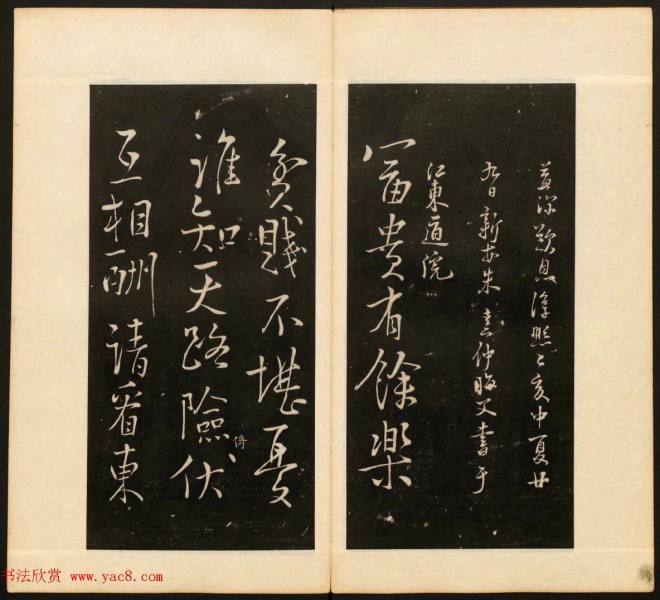 益深歎息淳熙己亥中夏廿
九日新安朱熹仲晦父書于
江東道院
富貴有餘樂
貧賤不堪憂
誰知天路險倚伏
互相酬請看東
书法欣赏 www.yac8.com